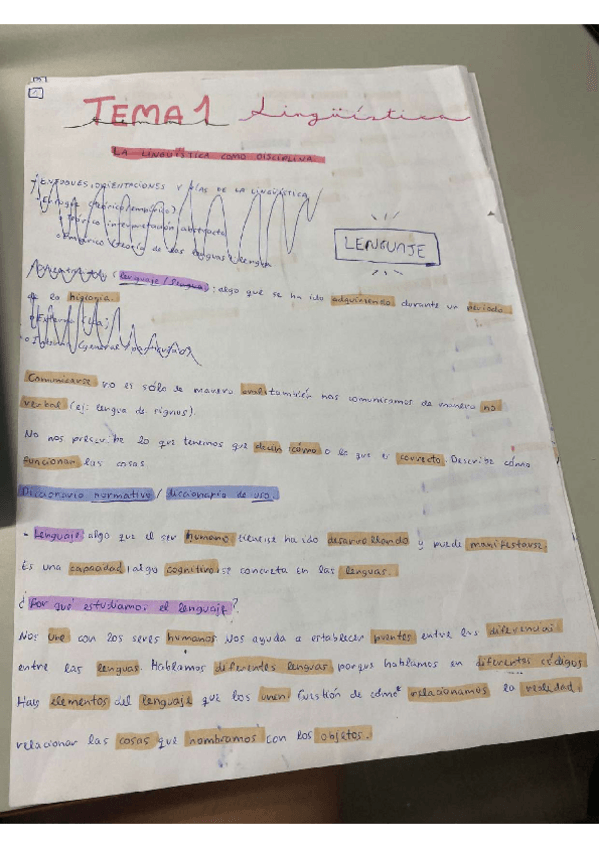 TEMA 1 Lingüística
LA LINGÜÍSTICA COMO DISCIPLINA.
ENFOQUES, ORIENTACIONES Y VÍAS DE LA LINGÜÍSTICA
LENGUAJE
(lenguaje / lengua): algo que se ha ido adquiriendo durante un periodo
la historia.
Comunicarse no es sólo de manera oral: también nos comunicamos de manera no
verbal (ej: lengua de signos).
No nos prescribe lo que tenemos que decir, cómo o lo que es correcto. Describe cómo
funcionan las cosas
Diccionario normativo / diccionario de uso.
- Lenguaje: algo que el ser humano tiene, se ha ido desarrollando y puede manifestarse.
Es una capacidad, algo cognitivo: se concreta en las lenguas.
¿Por qué estudiamos el lenguaje?
Nos une con los seres humanos. Nos ayuda a establecer puentes entre las diferencias
entre las lenguas. Hablamos diferentes lenguas porque hablamos en diferentes códigos.
Hay elementos del lenguaje que los unen. Cuestión de cómo relacionamos la realidad,
relacionar las cosas que nombramos con los objetos.